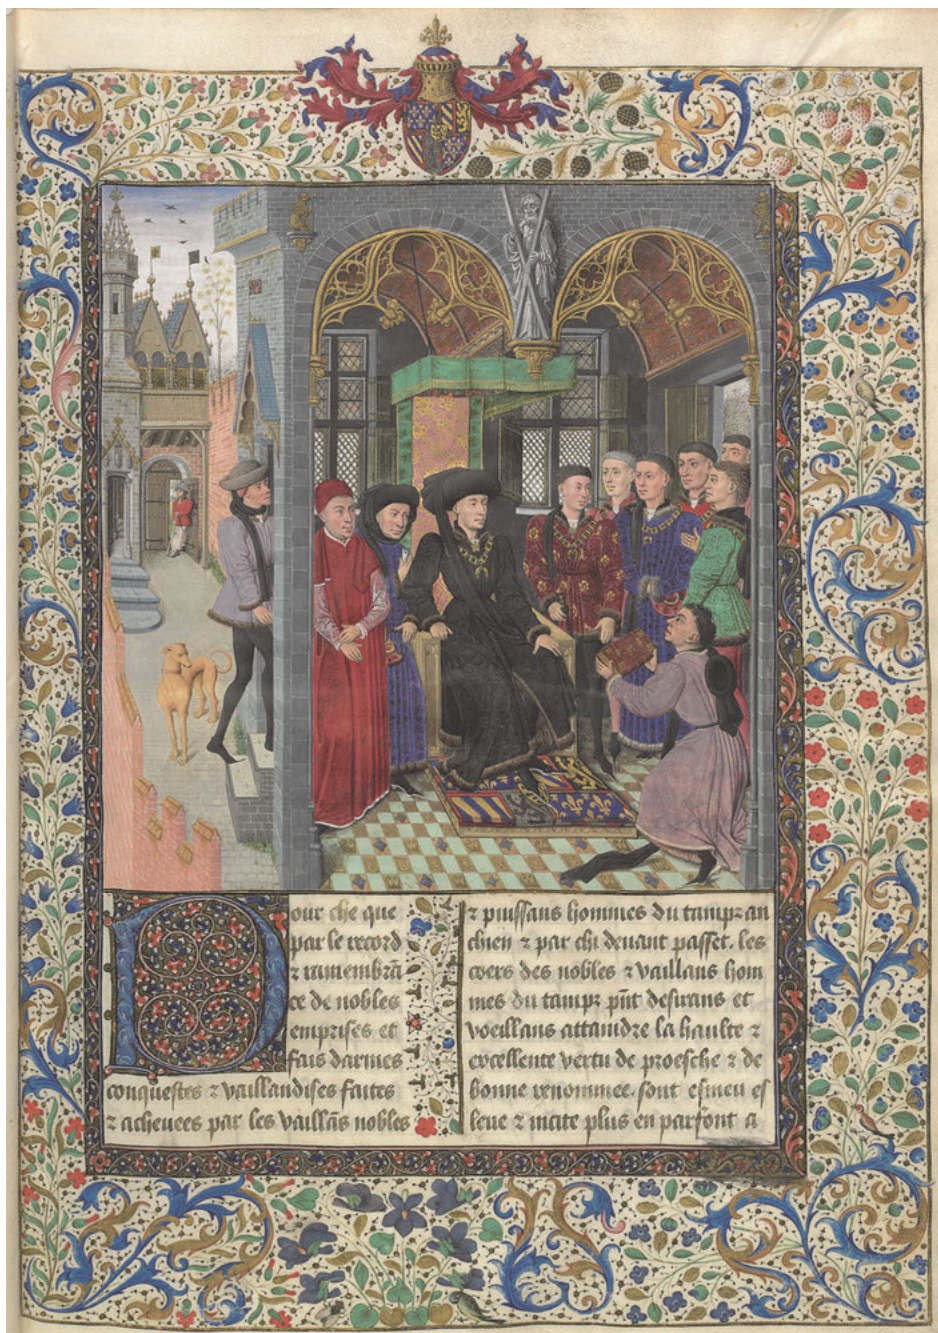 Pour che que
par le record
⁊ ramembrā
ce de nobles
emprises et
fais darmes
conquestes ⁊ vaillandises faites
⁊ acheuees par les vaillās nobles
⁊ puissans hommes du tampz an
chien ⁊ par chi deuant passet. les
coers des nobles ⁊ vaillans hom
mes du tampz pn̄t desirans et
voeillans attaindre la haulte ⁊
excellente vertu de proesche ⁊ de
bonne renommee. sont esmeu es
leue ⁊ incite plus en parfont a